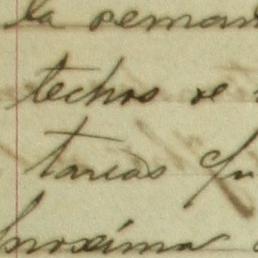 la seman
techos se
tareas qu
proxima